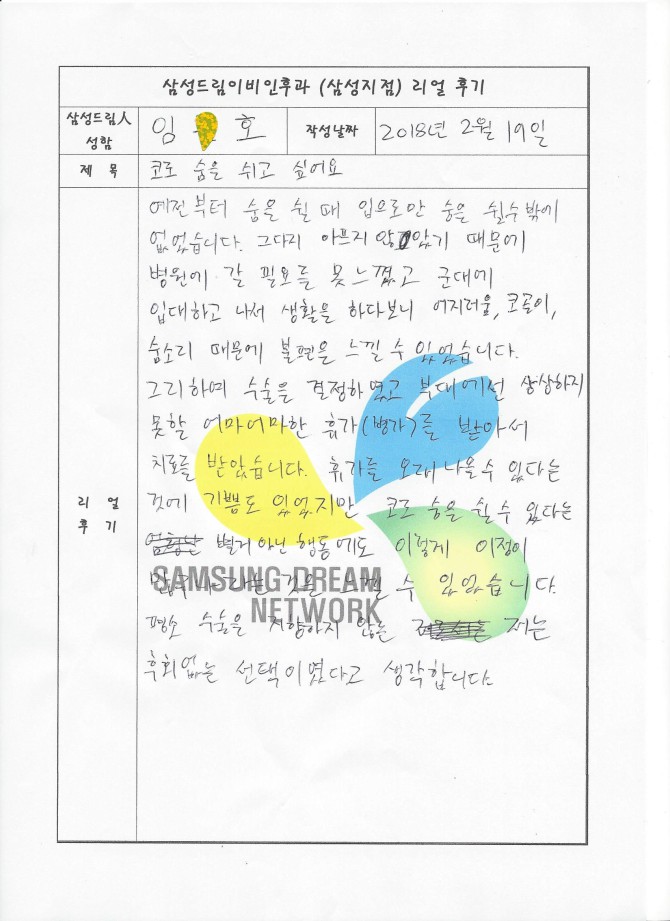 삼성드림이비인후과 (삼성지점) 리얼 후기
삼성드림人 성함
임 호
작성날짜
2018년 2월 19일
제 목
코로 숨을 쉬고 싶어요
리 얼 후 기
예전부터 숨을 쉴 때 입으로만 숨을 쉴수밖에
없었습니다. 그다지 아프지 않았기 때문에
병원에 갈 필요를 못느꼈고 군대에
입대하고 나서 생활을 하다보니 어지러움, 코골이,
숨소리 때문에 불편을 느낄 수 있었습니다.
그리하여 수술을 결정하였고 부대에선 상상하지
못할 어마어마한 휴가(병가)를 받아서
치료를 받았습니다. 휴가를 오래나올수 있다는
것에 기쁨도 있었지만 코로 숨을 쉴 수 있다는
별거 아닌 행동에도 이렇게 이점이
많구나 라는 것을 느낄 수 있었습니다.
평소 수술을 지향하지 않는 저는
후회없는 선택이였다고 생각합니다.
SAMSUNG DREAM
NETWORK